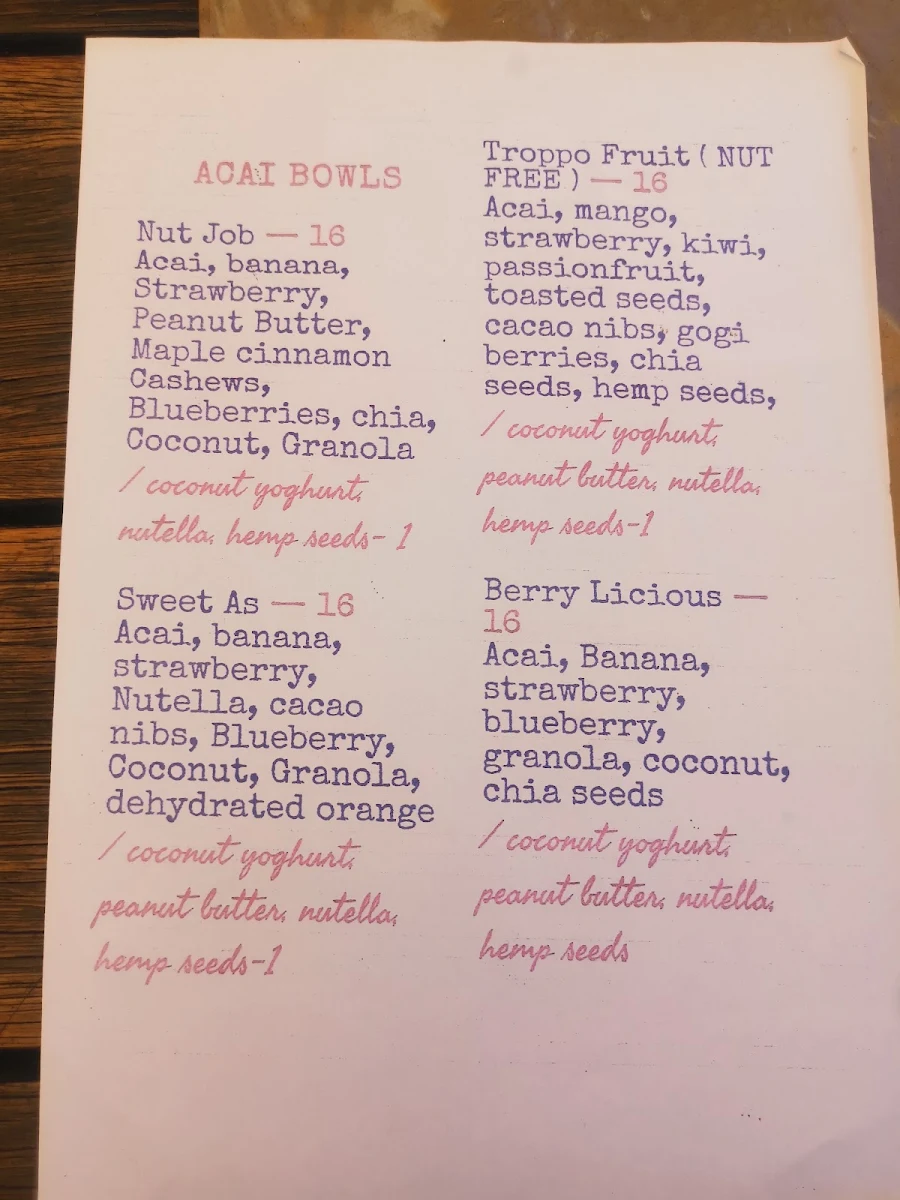 ACAI BOWLS
Nut Job — 16
Acai, banana,
Strawberry,
Peanut Butter,
Maple cinnamon
Cashews,
Blueberries, chia,
Coconut, Granola
/ coconut yoghurt,
nutella, hemp seeds- 1
Sweet As — 16
Acai, banana,
strawberry,
Nutella, cacao
nibs, Blueberry,
Coconut, Granola,
dehydrated orange
/ coconut yoghurt,
peanut butter, nutella,
hemp seeds-1
Troppo Fruit ( NUT
FREE ) — 16
Acai, mango,
strawberry, kiwi,
passionfruit,
toasted seeds,
cacao nibs, gogi
berries, chia
seeds, hemp seeds,
/ coconut yoghurt,
peanut butter, nutella,
hemp seeds-1
Berry Licious —
16
Acai, Banana,
strawberry,
blueberry,
granola, coconut,
chia seeds
/ coconut yoghurt,
peanut butter, nutella,
hemp seeds